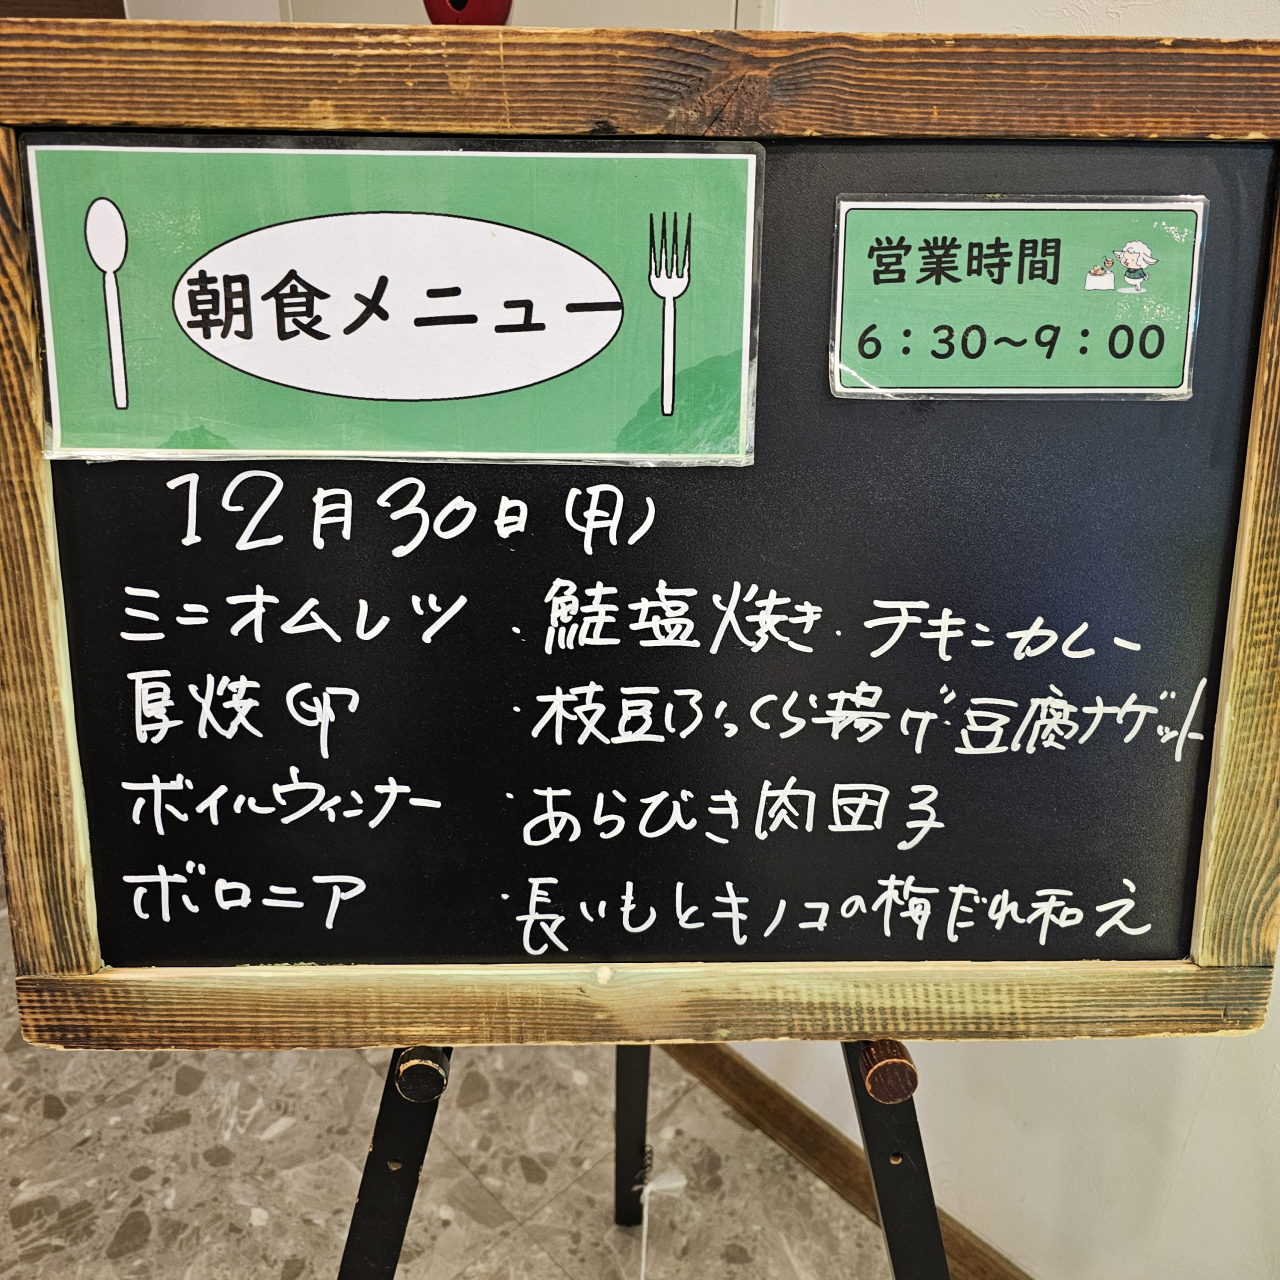 朝食メニュー
営業時間
6:30〜9:00
12月30日(月)
ミニオムレツ ・鮭塩焼き ・チキンカレー
厚焼卵 ・枝豆ふっくら揚げ ・豆腐ナゲット
ボイルウィンナー ・あらびき肉団子
ボロニア ・長いもとキノコの梅だれ和え